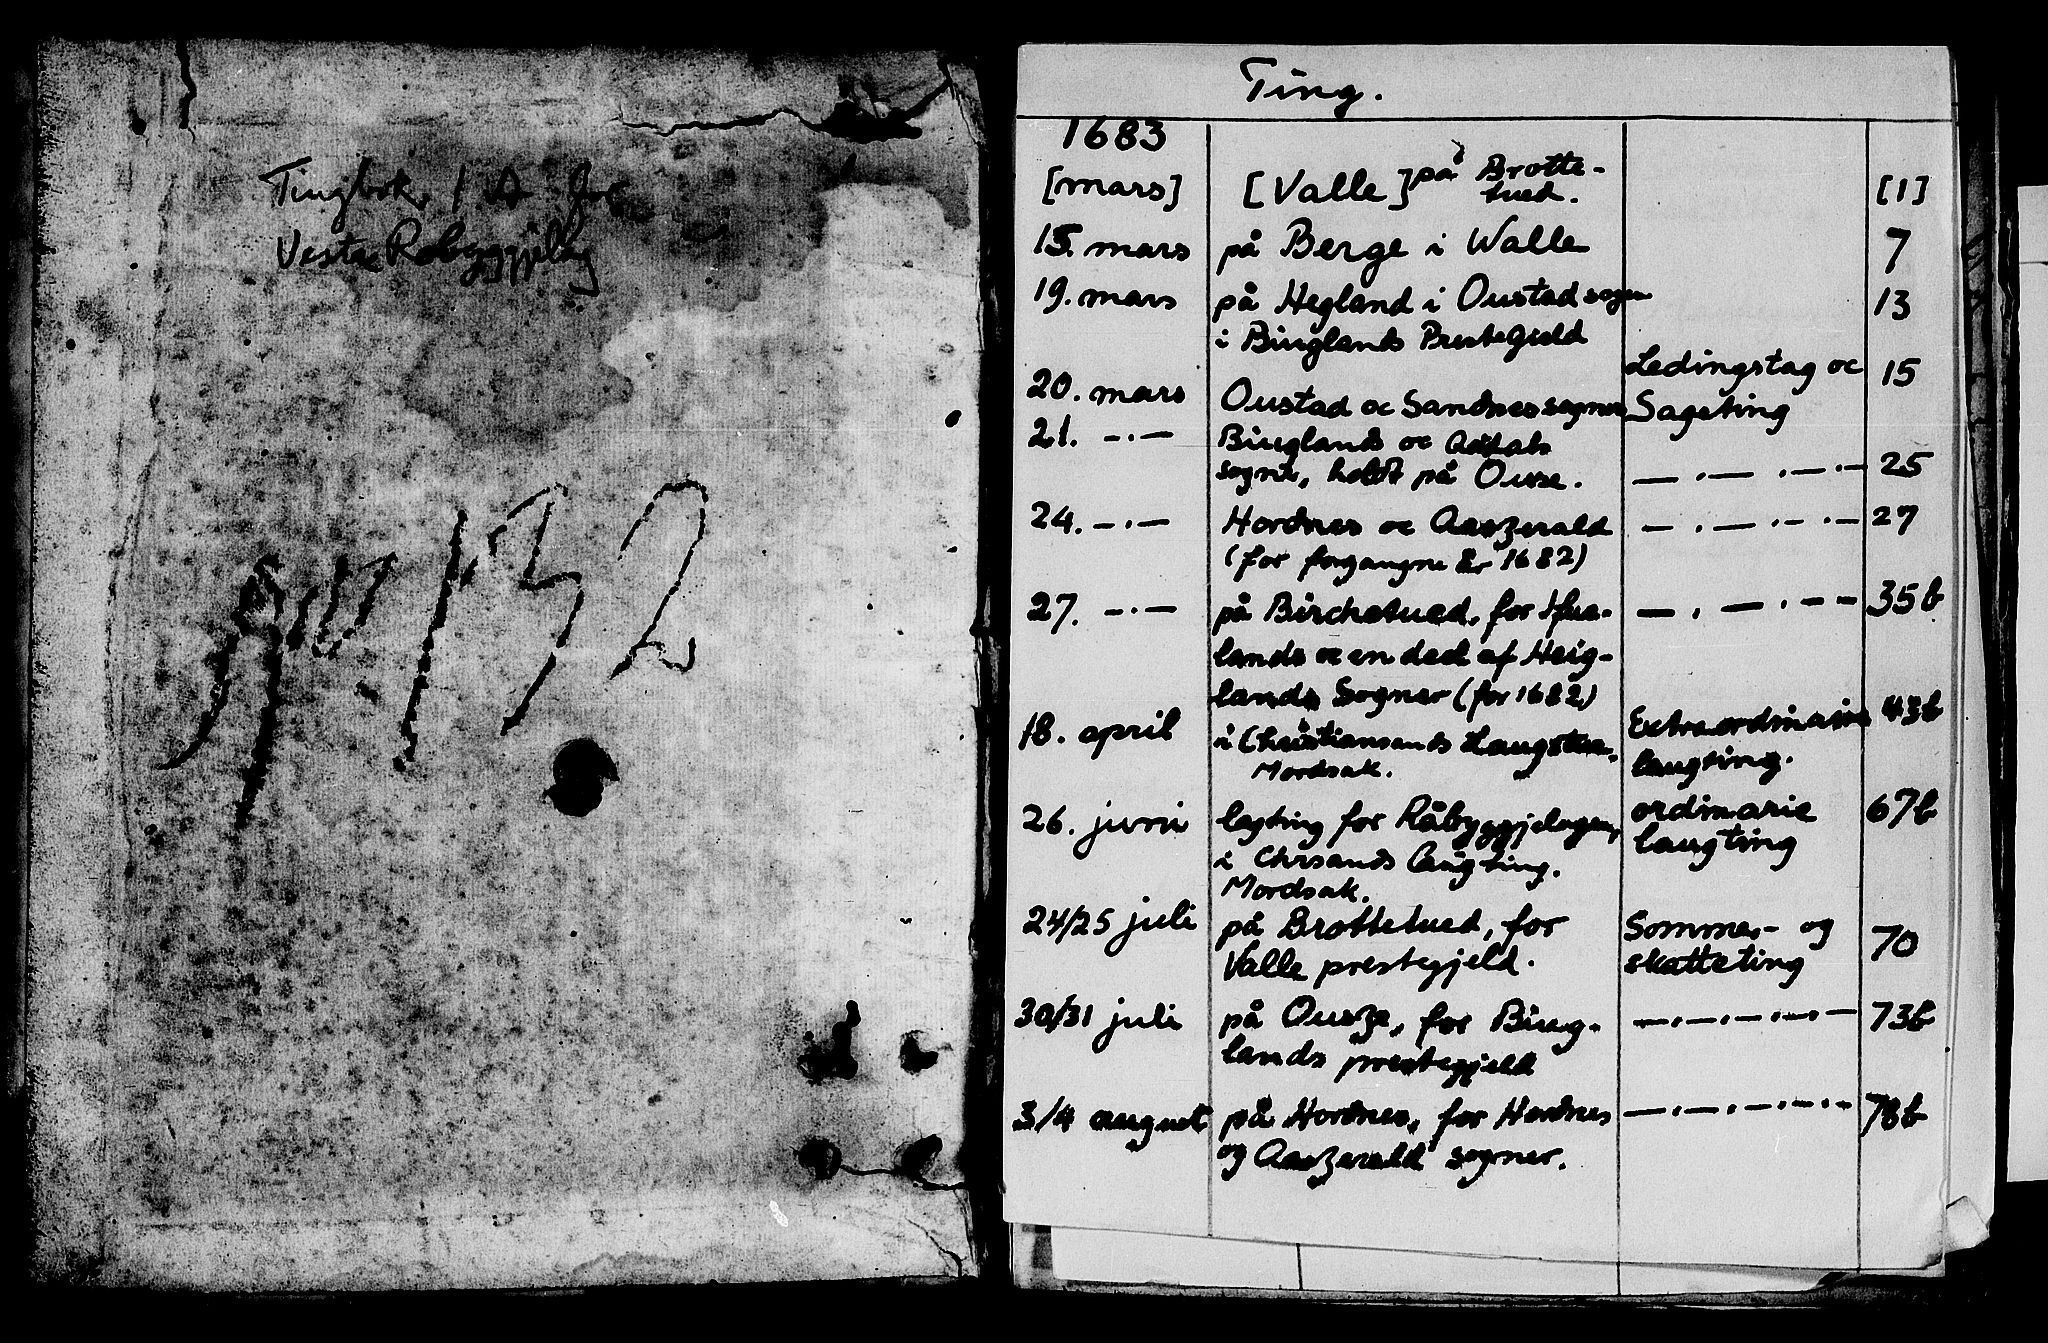 Tingbok 1 A for
Vestre Råbyggjelag
No 132
Ting.
1683
[mars] [Valle] på Brotte-
tued. [1]
15. mars på Berge i Walle 7
19. mars på Hegland i Oustad sogn 13
i Biuglands Prestegield
20. mars Oustad oc Sandnes sogner Ledingstag oc Sageting 15
21. -.- Biuglands oc
sogne, holdt på Ouse. - . - . - . - 25
24. -.- Hordnes oc Aaszerald - . - . - . - 27
(for forgangne år 1682)
27. -.- på Birchetued, for Hua- - . - . - - 35b
lands oc en deel af Heig-
lands Sogner (for 1682)
18. april i Christiansands Laugstue. Extraordinaire laugting. 43b
Mordsak.
26. juni lagting for Råbyggjelagen, ordinarie laugting 67b
i Chrsands laugting.
Mordsak.
24/25 juli på Brottetued, for Sommer- og 70
Valle prestegjeld. skatteting
30/31 juli på Ousze, for Biug- -.-.-.-.- 73b
lands prestegjeld
3/4 august på Hordnes, for Hordnes -.-.-.-.- 78b
og Aaszerald sogner.